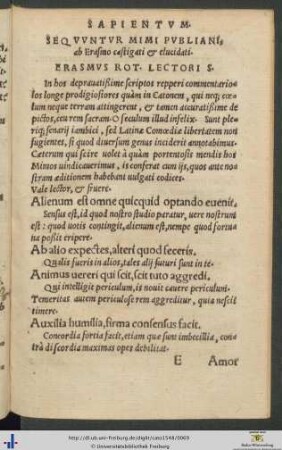 SAPIENTVM.
SEQVVNTVR MIMI PVBLIANI,
ab Erasmo castigati & elucidati.
ERASMVS ROT. LECTORI S.
In hos depravatissime scriptos repperi commentario-
los longe prodigiosiores quàm in Catonem, qui neq; cœ-
lum neque terram attingerent, & tamen accuratissime de
pictos, ceu rem sacram. O seculum illud infelix. Sunt ple-
riq; senarij iambici, sed Latinæ Comœdiæ libertatem non
fugientes, si quod diversum genus inciderit annotabimus.
Cæterum qui scire volet à quàm portentosis mendis hos
Mimos vindicaverimus, is conferat cum ijs, quos ante no-
stram æditionem habebant vulgati codices.
Vale lector, & fruere.
Alienum est omne quicquid optando evenit.
Sensus est, id quod nostro studio paratur, vere nostrum
est: quod votis contingit, alienum est, nempe quod fortu-
na possit eripere.
Ab alio expectes, alteri quod feceris.
Qualis fueris in alios, tales alij futuri sunt in te.
Animus vereri qui scit, scit tuto aggredi.
Qui intelligit periculum, is novit cavere periculum.
Temeritas autem periculose rem aggreditur, quia nescit
timere.
Auxilia humilia, firma consensus facit.
Concordia fortia facit, etiam que sunt imbecillia, con-
trà discordia maximas opes debilitat.
E Amor
http://dl.ub.uni-freiburg.de/diglit/cato1548/0069
© Universitätsbibliothek Freiburg